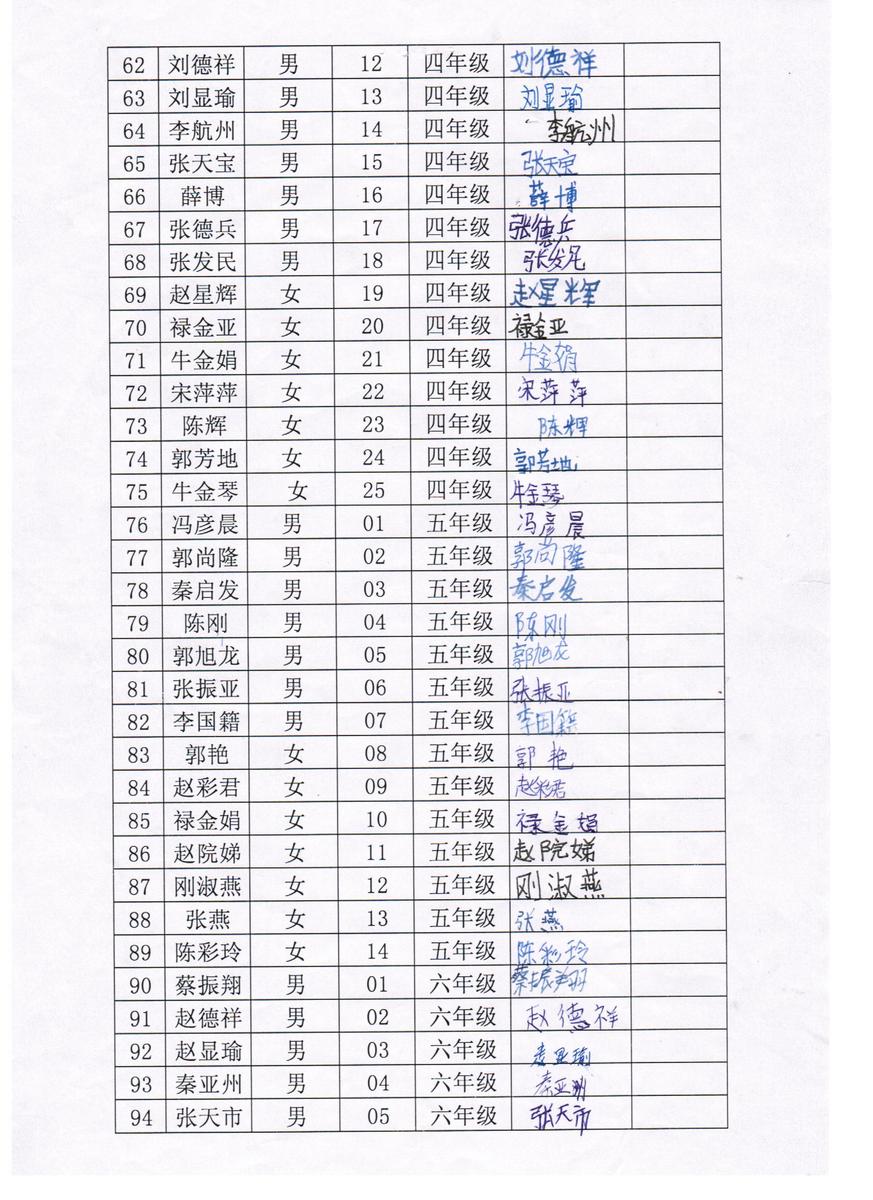 62 刘德祥 男 12 四年级 刘德祥
63 刘显瑜 男 13 四年级 刘显瑜
64 李航州 男 14 四年级 李航州
65 张天宝 男 15 四年级 张天宝
66 薛博 男 16 四年级 薛博
67 张德兵 男 17 四年级 张德兵
68 张发民 男 18 四年级 张发民
69 赵星辉 女 19 四年级 赵星辉
70 禄金亚 女 20 四年级 禄金亚
71 牛金娟 女 21 四年级 牛金娟
72 宋萍萍 女 22 四年级 宋萍萍
73 陈辉 女 23 四年级 陈辉
74 郭芳地 女 24 四年级 郭芳地
75 牛金琴 女 25 四年级 牛金琴
76 冯彦晨 男 01 五年级 冯彦晨
77 郭尚隆 男 02 五年级 郭尚隆
78 秦启发 男 03 五年级 秦启发
79 陈刚 男 04 五年级 陈刚
80 郭旭龙 男 05 五年级 郭旭龙
81 张振亚 男 06 五年级 张振亚
82 李国籍 男 07 五年级 李国籍
83 郭艳 女 08 五年级 郭艳
84 赵彩君 女 09 五年级 赵彩君
85 禄金娟 女 10 五年级 禄金娟
86 赵院娣 女 11 五年级 赵院娣
87 刚淑燕 女 12 五年级 刚淑燕
88 张燕 女 13 五年级 张燕
89 陈彩玲 女 14 五年级 陈彩玲
90 蔡振翔 男 01 六年级 蔡振翔
91 赵德祥 男 02 六年级 赵德祥
92 赵显瑜 男 03 六年级 赵显瑜
93 秦亚州 男 04 六年级 秦亚州
94 张天市 男 05 六年级 张天市